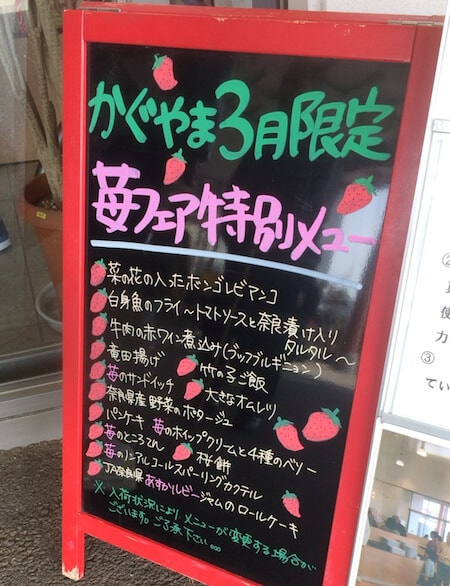 かぐやま3月限定
苺フェア特別メニュー
菜の花の入ったボンゴレビアンコ
白身魚のフライ～トマトソースと奈良漬け入り
タルタル～
牛肉の赤ワイン煮込み(ブッフルギニョン)
竜田揚げ 竹の子ご飯
苺のサンドイッチ 大きなオムレツ
奈良県産野菜のポタージュ
パンケーキ 苺のホイップクリームと4種のベリー
苺のところてん 桜餅
苺のノンアルコールスパーリングカクテル
JA奈良県あすかルビージャムのロールケーキ
※入荷状況によりメニューが変更する場合が
ございます。ご了承下さい…。
②
③
てい